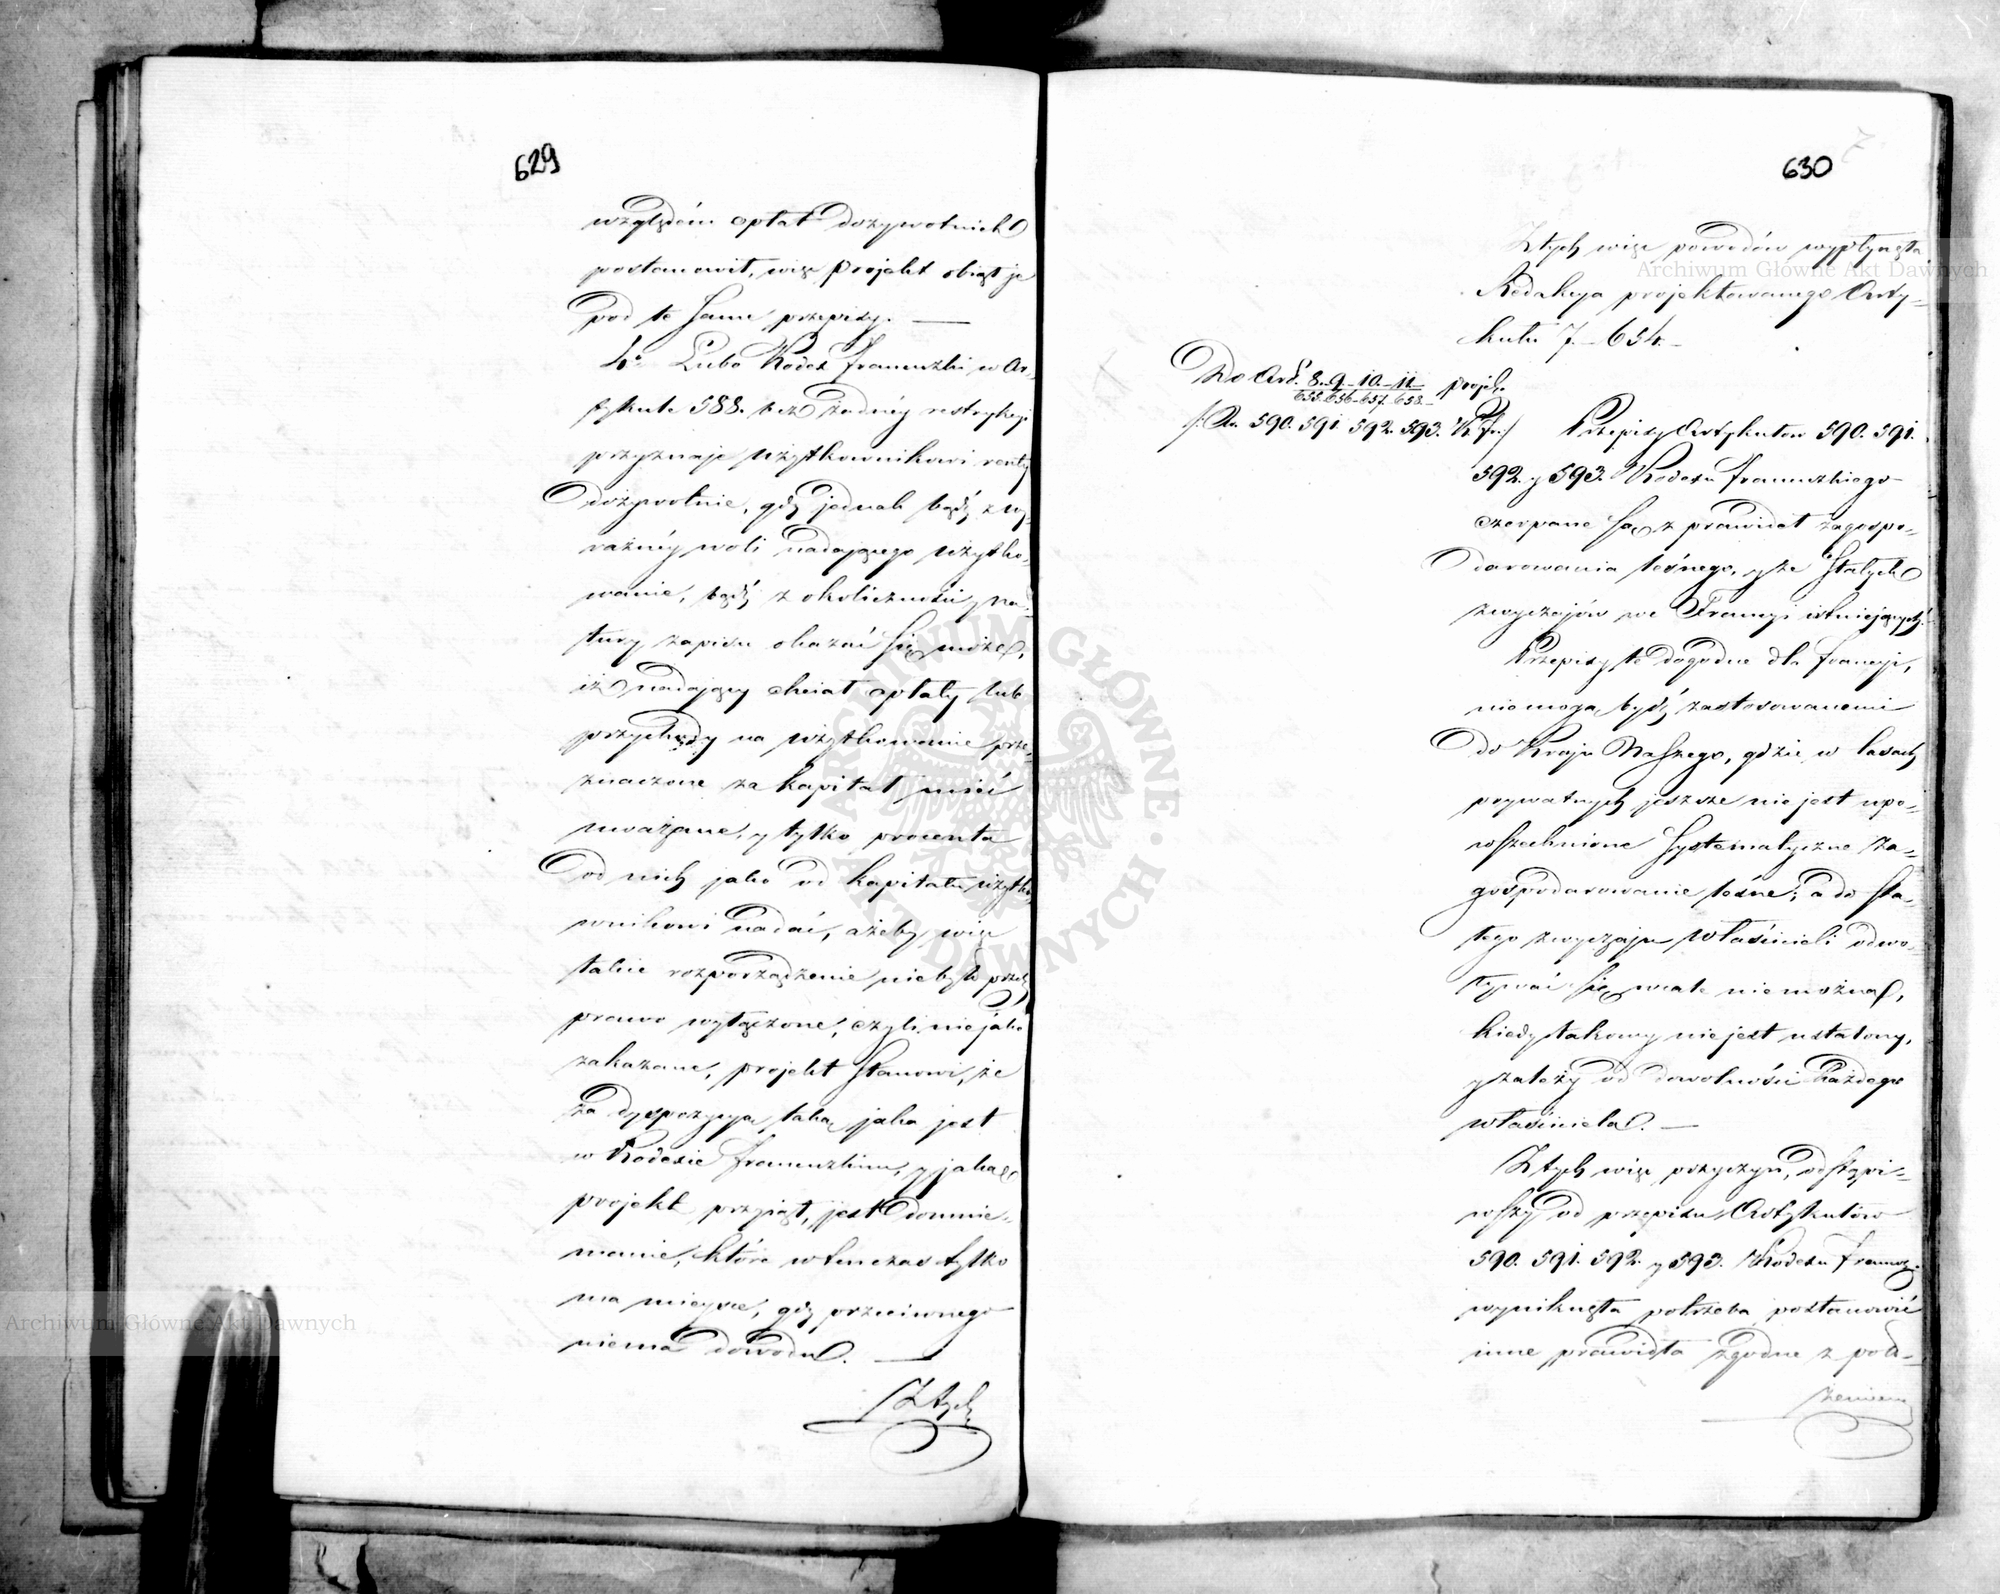 629
względem opłat dożywotnich
postanowił, więc projekt obiął je
pod te same przepisy. —
4o Lubo Kodex francuzki w Ar-
tykule 588. bez żadnéy restrykcyi
przyznaje użytkownikowi renty
dożywotnie, gdy jednak bądź z wy-
raźnéy woli nadającego użytko-
wanie, bądź z okoliczności y na-
tury zapisu okazać się może,
iż nadający chciał opłaty lub
przychody na użytkowanie prze-
znaczone za kapitał mieć
uważane, y tylko procenta
od nich jako od kapitału użytko-
wnikowi nadać, ażeby więc
takie rozporządzenie niebyło przez
prawo wyłączone, czyli niejako
zakazane, projekt stanowi, że
ta dyspozycya taka, jaka jest
w Kodexie francuzkim, y jaką
projekt przyiął, jest domnie-
manie, które wtenczas tylko
ma mieysce, gdy przeciwnego
niema dowodu. —
Z tych
630
Z tych więc powodów wypłynęła
Redakcya projektowanego Arty-
kułu 7. – 654. –
Do Art. 8. 9 – 10. – 11 projek.
655. 656 – 657. 658. –
/: Ar. 590. 591. 592. 593. K. Fr: /
Przepisy Artykułów 590. 591.
592. y 593. Kodexu francuzkiego
czerpane są z prawideł zagospo-
darowania leśnego, y ze stałych
zwyczajów we Francyi istniejących.
Przepisy te dogodne dla francyi,
niemogą bydź zastosowanemi
do Kraju Naszego, gdzie w lasach
prywatnych jeszcze nie jest upo-
wszechnione systematyczne za-
gospodarowanie leśne; a do sta-
łego zwyczaju właścicieli odwo-
ływać się wcale nie można,
kiedy takowy niejest ustalony,
y zależy od dowolności każdego
właściciela. —
Z tych więc przyczyn, odstąpi-
wszy od przepisu Artykułów
590. 591. 592. y 593. Kodexu francuz.
wyniknęła potrzeba postanowić
inne prawidła zgodne z poło-
żeniem
Archiwum Główne Akt Dawnych
Archiwum Główne Akt Dawnych
ARCHIWUM GŁÓWNE AKT DAWNYCH